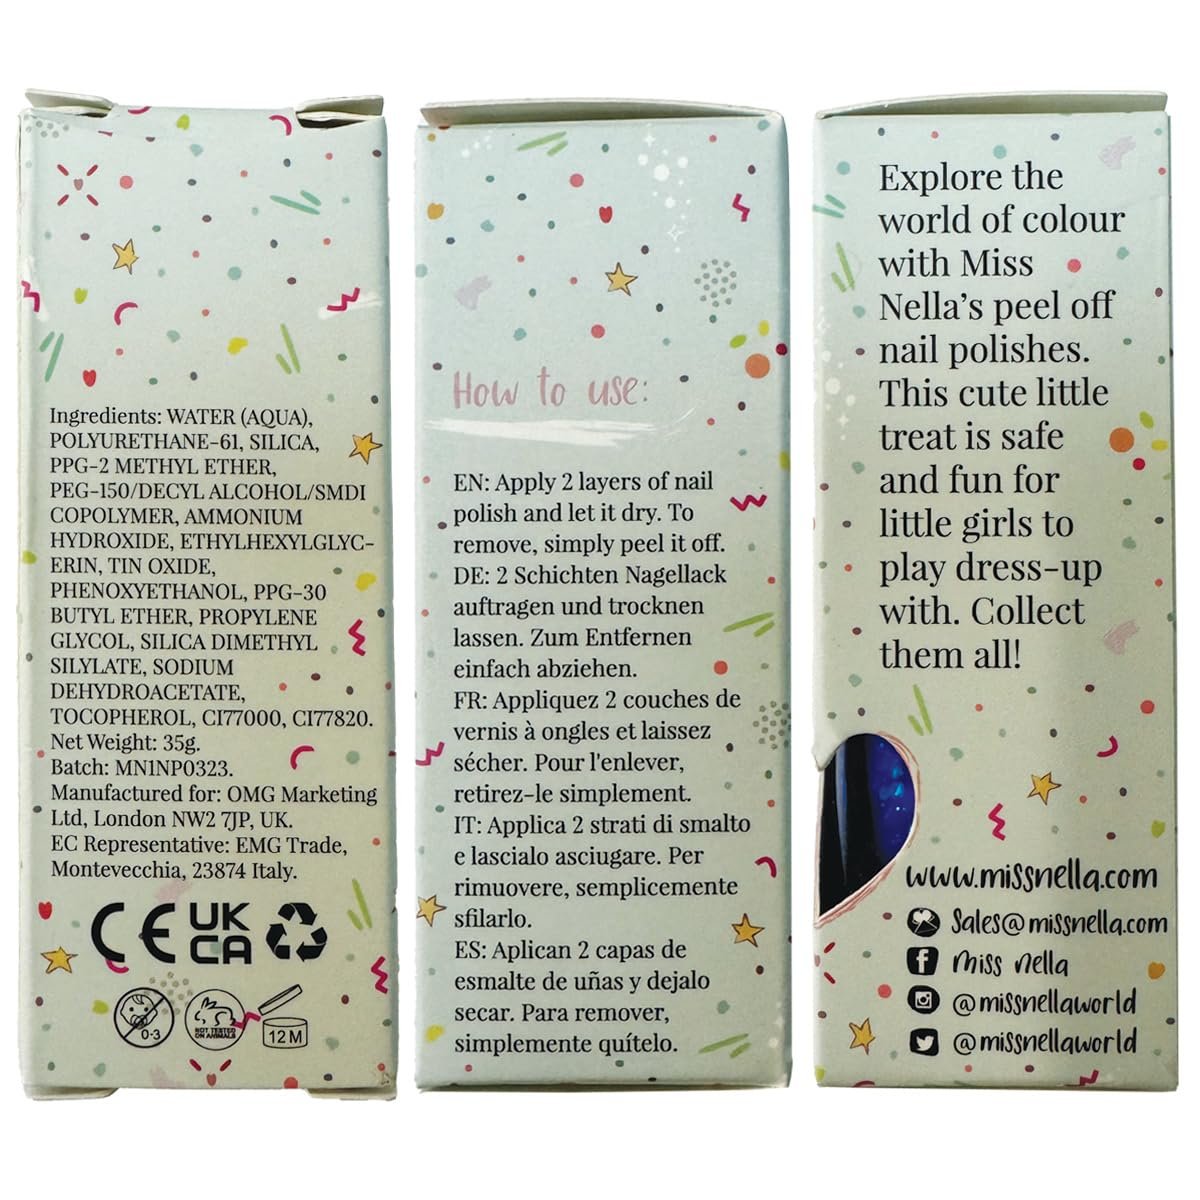 Ingredients: WATER (AQUA),
POLYURETHANE-61, SILICA,
PPG-2 METHYL ETHER,
PEG-150/DECYL ALCOHOL/SMDI
COPOLYMER, AMMONIUM
HYDROXIDE, ETHYLHEXYLGLYC-
ERIN, TIN OXIDE,
PHENOXYETHANOL, PPG-30
BUTYL ETHER, PROPYLENE
GLYCOL, SILICA DIMETHYL
SILYLATE, SODIUM
DEHYDROACETATE,
TOCOPHEROL, CI77000, CI77820.
Net Weight: 35g.
Batch: MN1NP0323.
Manufactured for: OMG Marketing
Ltd, London NW2 7JP, UK.
EC Representative: EMG Trade,
Montevecchia, 23874 Italy.
CE UK
CA
0-3
NOT TESTED
ON ANIMALS
12 M
How to use:
EN: Apply 2 layers of nail
polish and let it dry. To
remove, simply peel it off.
DE: 2 Schichten Nagellack
auftragen und trocknen
lassen. Zum Entfernen
einfach abziehen.
FR: Appliquez 2 couches de
vernis à ongles et laissez
sécher. Pour l'enlever,
retirez-le simplement.
IT: Applica 2 strati di smalto
e lascialo asciugare. Per
rimuovere, semplicemente
sfilarlo.
ES: Aplican 2 capas de
esmalte de uñas y dejalo
secar. Para remover,
simplemente quítelo.
Explore the
world of colour
with Miss
Nella's peel off
nail polishes.
This cute little
treat is safe
and fun for
little girls to
play dress-up
with. Collect
them all!
www.missnella.com
Sales@missnella.com
Miss Nella
@missnellaworld
@missnellaworld